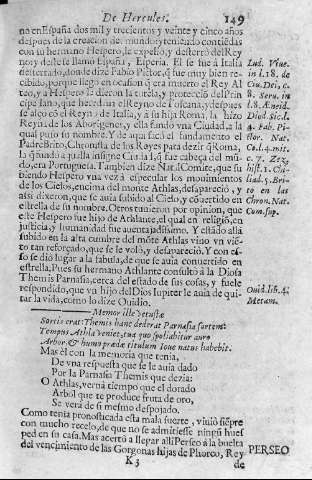 De Hercules.
149
no en España dos mil y trecientos y veinte y cinco años
despues de la creacion del mundo; y teniendo contiẽdas
con su hermano Hespero, le expelio, y desterrò del Rey
no; y deste se llamo España, Esperia. El se fue à Italia
desterrado, donde dize Fabio Pictor, q̃ fue muy bien re-
cibido, porque llegò en ocasion q̃ era muerto el Rey Al
teo, y à Hespero le dieron la tutela, y proteccion del Prin
cipe Iano, que heredò en el Reyno de Toscana, y despues
se alço cõ el Reyno de Italia, y à su hija Roma, la hizo
Reyna de los Aborigenes, y ella fundò vna Ciudad, à la
qual puso su nombre. Y de aqui facò el fundamento el
Padre Brito, Chronista de los Reyes para dezir q̃ Roma,
la q̃ fundò à aquella insigne Ciudad, q̃ fue cabeça del mũ-
do, era Portuguesa. Tambien dize Nat. Comite, que su
biendo Hespero vna vez à especular los mouimientos
de los Cielos, encima del monte Athlas, desapareciò, y
assi dixeron, que se auia subido al Cielo, y cõuertido en
estrella de su nombre. Otros tuuieron por opinion, que
este Hespero fue hijo de Athlante, el qual en religiõ, en
justicia, y humanidad fue auentajadissimo. Y estãdo allà
subido en la alta cumbre del mõte Athlas vino vn viẽ-
to tan reforçado, que se le volò, y desapareciò. Y con es-
to se dio lugar à la fabula, de que se auia conuertido en
estrella. Pues su hermano Athlante consultò à la Diosa
Themis Parnasia, cerca del estado de sus cosas, y fuele
respondido, que vn hijo del Dios Iupiter le auia de qui-
tar la vida, como lo dize Ouidio.
Memor ille vetustæ
Sortis erat: Themis hanc dederat Parnasia sortem:
Tempus Athla veniet, tua quo spoliabitur auro
Arbor: & hunc prædæ titulum Ioue natus habebit.
Mas èl con la memoria que tenia,
De vna respuesta que se le auia dado
Por la Parnasia Themis que dezia:
O Athlas, vernà tiempo que el dorado
Arbol que te produce fruta de oro,
Se verà de si mesmo despojado.
Como tenia pronosticada esta mala suerte, viuiò siẽpre
con mucho recelo, de que no se admitiesse ningũ hues
ped en su casa. Mas acertò a llegar alli Perseo à la buelta
del vencimiento de las Gorgonas hijas de Phorco, Rey
K 3
de
Lud. Viue.
in l. 18. de
Ciu. Dei, c.
8. Seru. in
l. 8. Æneid.
Diod. Sic. l.
4. Fab. Pi-
ctor. Nat.
Co. l. 4. mit.
c. 7. Zez.
hist. 1. Chi-
liad. 5. Bri-
to en las
Chron. Nat.
Com. sup.
Ouid. lib. 4.
Metam.
PERSEO